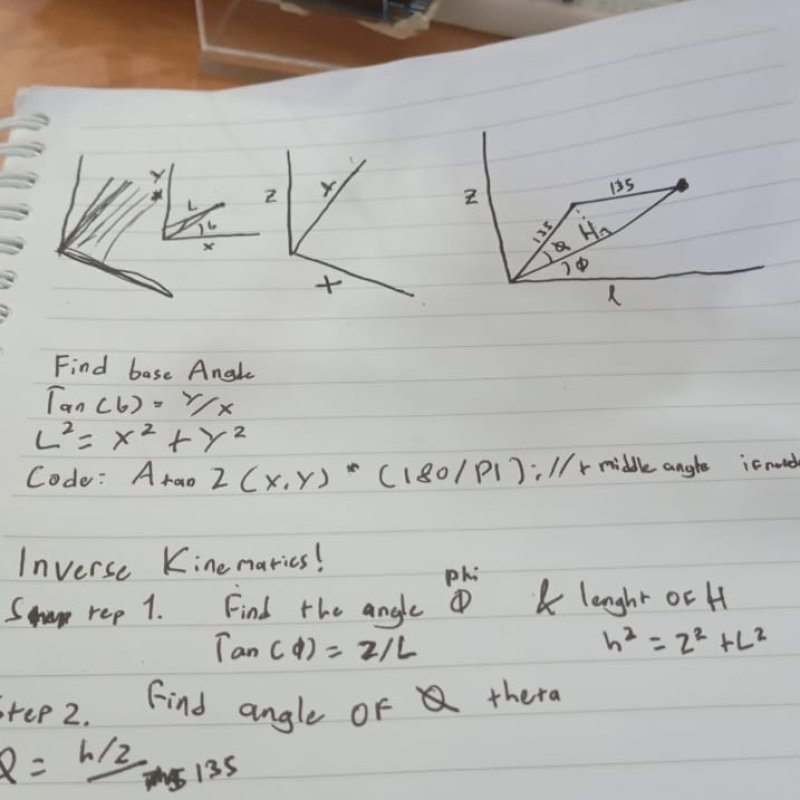 Y
L
b
x
Z
x
+
Z
135
135
H
θ
Φ
l
Find base Angle
Tan(b) = Y/x
L² = x² + Y²
Code: Atan2(x,Y) * (180/PI); // + middle angle if
Inverse Kinematics!
phi
Step 1. Find the angle Φ & lenght OF H
Tan(Φ) = Z/L h² = Z² + L²
Step 2. find angle OF θ theta
θ = h/2 135